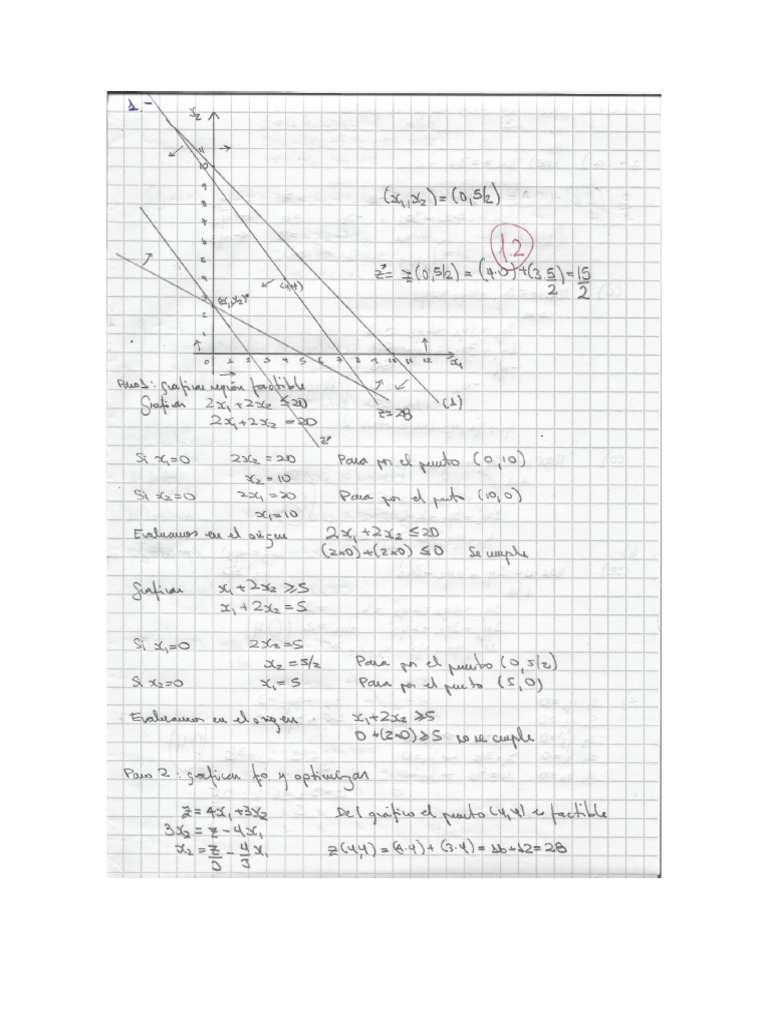 1.-
x₂
11
10
9
8
7
6
5
4
3
2
1
0 1 2 3 4 5 6 7 8 9 10 11 12 x₁
(x₁,x₂)=(0,5/2)
1.2
z*= z(0,5/2) = (4·0)+(3·5/2)=15/2
(4,4)
(x₁,x₂)*
(1)
z=28
z*
Paso 1: graficar región factible
Graficar 2x₁+2x₂≤20
2x₁+2x₂=20
Si x₁=0 2x₂=20 Pasa por el punto (0,10)
x₂=10
Si x₂=0 2x₁=20 Pasa por el punto (10,0)
x₁=10
Evaluamos en el origen 2x₁+2x₂≤20
(2×0)+(2×0)≤0 Se cumple
Graficar x₁+2x₂≥5
x₁+2x₂=5
Si x₁=0 2x₂=5
x₂=5/2 Pasa por el punto (0,5/2)
Si x₂=0 x₁=5 Pasa por el punto (5,0)
Evaluamos en el origen x₁+2x₂≥5
0+(2×0)≥5 no se cumple
Paso 2: graficar fo. y optimizar
z=4x₁+3x₂ Del gráfico el punto (4,4) es factible
3x₂=z-4x₁
x₂=z/3-4/3x₁ z(4,4)=(4·4)+(3·4)=16+12=28